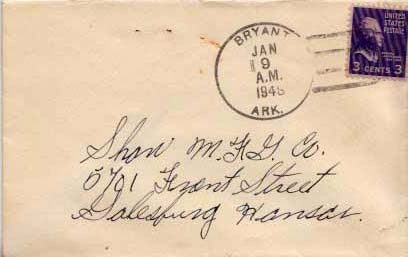 BRYANT
JAN
9
A.M.
1946
ARK.
UNITED
STATES
POSTAGE
3 CENTS 3
Shaw M.F.G. Co.
5701 Front Street
Galesburg Kansas.